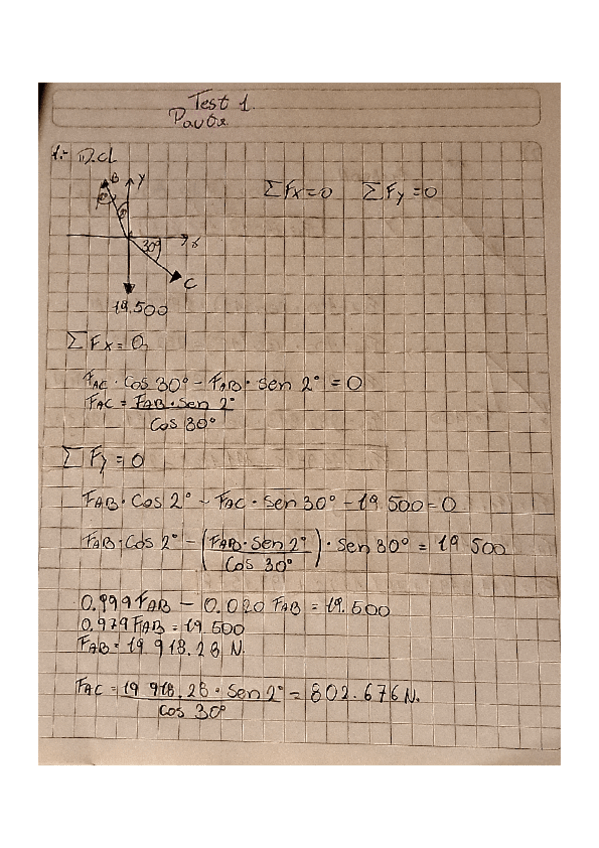 Test 1.
Pauta
1.- D.cl
B y
ΣFx=0 ΣFy=0
2°
30° x
C
19.500
ΣFx=0,
FAC · Cos 30° - FAB · sen 2° = 0
FAC = FAB · sen 2°
Cos 30°
ΣFy = 0
FAB · Cos 2° - FAC · sen 30° - 19.500 = 0
FAB · Cos 2° - (FAB · sen 2° / Cos 30°) · sen 30° = 19 500
0.999 FAB - 0.020 FAB = 19.500
0.979 FAB = 19 500
FAB = 19 918.28 N.
FAC = 19 918.28 · sen 2° = 802.676 N.
cos 30°